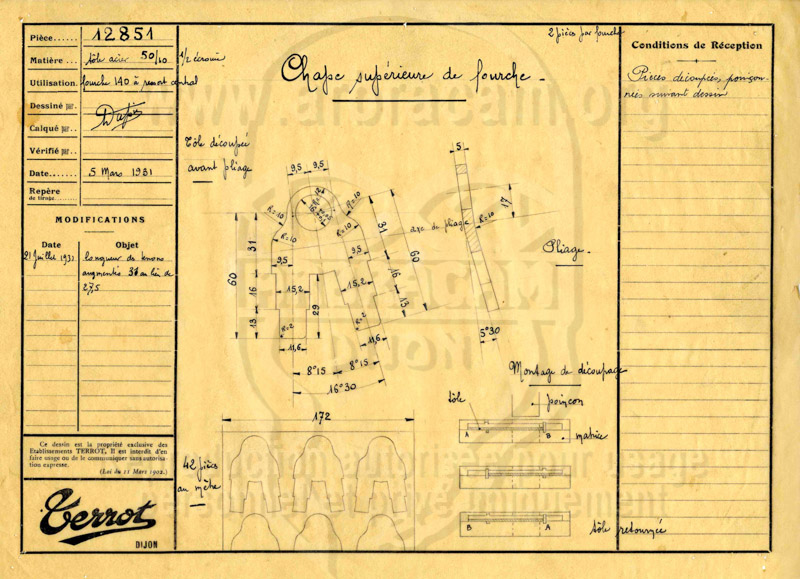 Pièce...... 12851
Matière... tôle acier 50/10 1/2 écrouie
Utilisation fourche 140 à ressort central
Dessiné par..
Calqué par..
Vérifié par..
Date....... 5 Mars 1931
Repère
de tirage
MODIFICATIONS
Date Objet
21 Juillet 1931 Longueur de
augmentée 31 au lieu de
27,5
Ce dessin est la propriété exclusive des
Etablissements TERROT, Il est interdit d'en
faire usage ou de le communiquer sans autorisa-
tion expresse.
(Loi du 11 Mars 1902.)
Terrot
DIJON
2 pièces par fourche
Chape supérieure de fourche -
Tôle découpée
avant pliage
9,5 9,5
R=10
R=10
R=10
R=10
31
60
9,5
9,5
31
60
16
15,2
15,2
16
29
13
13
R=2
R=2
11,6
11,6
8°15 8°15
16°30
5
axe de pliage
R=10
17
Pliage -
5°30
172
42 pièces
au mètre
Montage de découpage
tôle
poinçon
A B
matrice
B A
tôle retournée
Conditions de Réception
Pièces découpées, poinçon-
nées suivant dessin
DIJON